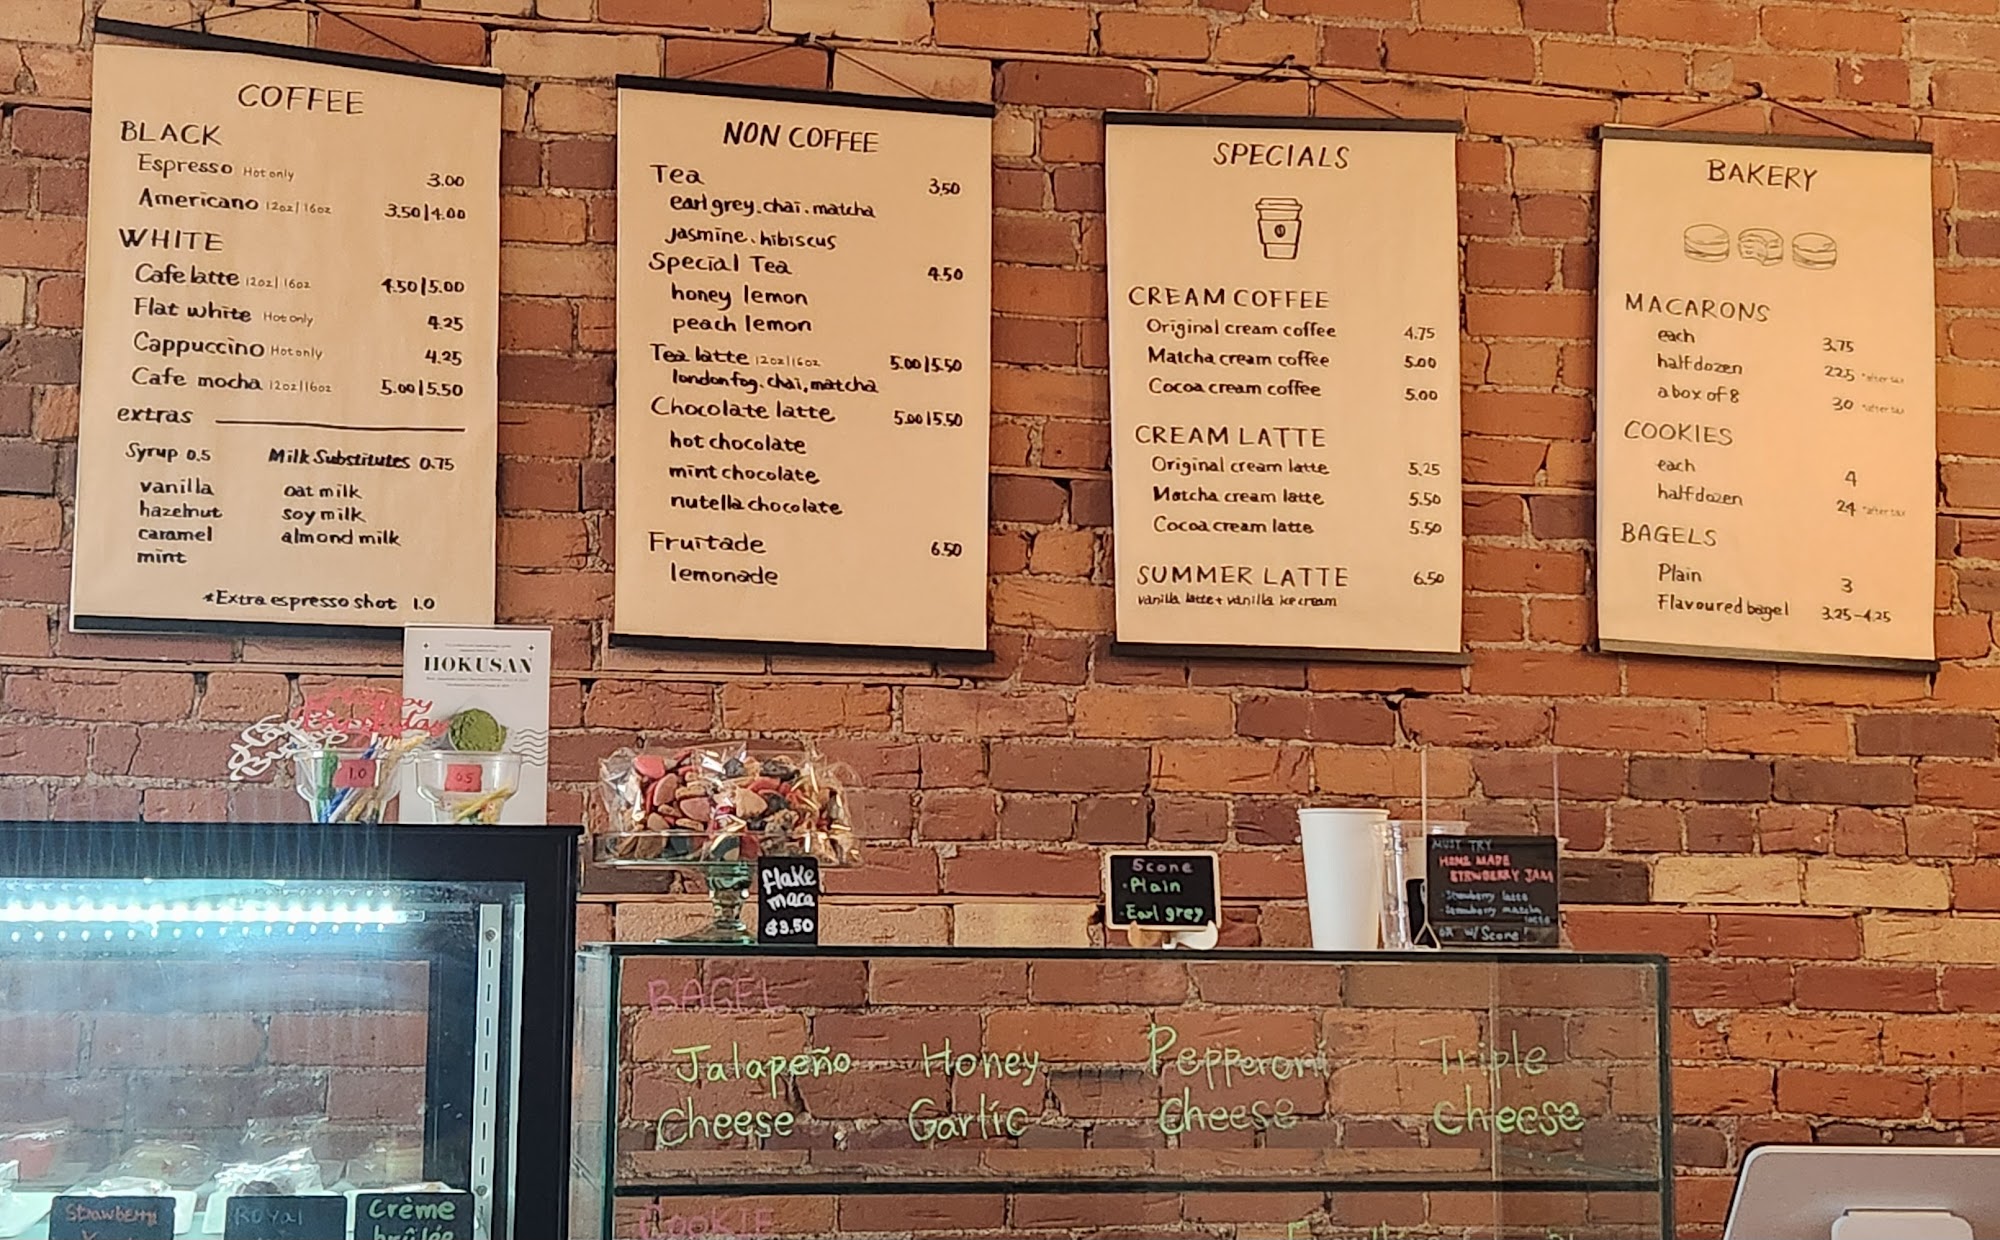 COFFEE
BLACK
Espresso Hot only 3.00
Americano 12oz|16oz 3.50|4.00
WHITE
Cafe latte 12oz|16oz 4.50|5.00
Flat white Hot only 4.25
Cappuccino Hot only 4.25
Cafe mocha 12oz|16oz 5.00|5.50
extras
Syrup 0.5 Milk Substitutes 0.75
vanilla oat milk
hazelnut soy milk
caramel almond milk
mint
*Extra espresso shot 1.0
NON COFFEE
Tea 3.50
earl grey. chai. matcha
jasmine. hibiscus
Special Tea 4.50
honey lemon
peach lemon
Tea latte 12oz|16oz 5.00|5.50
london fog. chai, matcha
Chocolate latte 5.00|5.50
hot chocolate
mint chocolate
nutella chocolate
Fruitade 6.50
lemonade
SPECIALS
CREAM COFFEE
Original cream coffee 4.75
Matcha cream coffee 5.00
Cocoa cream coffee 5.00
CREAM LATTE
Original cream latte 5.25
Matcha cream latte 5.50
Cocoa cream latte 5.50
SUMMER LATTE 6.50
vanilla latte + vanilla ice cream
BAKERY
MACARONS
each 3.75
half dozen 22.5 *after tax
a box of 8 30 *after tax
COOKIES
each 4
half dozen 24 *after tax
BAGELS
Plain 3
Flavoured bagel 3.25-4.25
HOKUSAN
1.0
0.5
flake
maca
$3.50
Scone
·Plain
·Earl grey
MUST TRY
HOME MADE
STRWBERRY JAM
·Strawberry latte
·Strawberry matcha
latte
OR W/ Scone!
BAGEL
Jalapeño Honey Pepperoni Triple
Cheese Garlic Cheese Cheese
COOKIE
Strawberry
Royal
Crème
brûlée